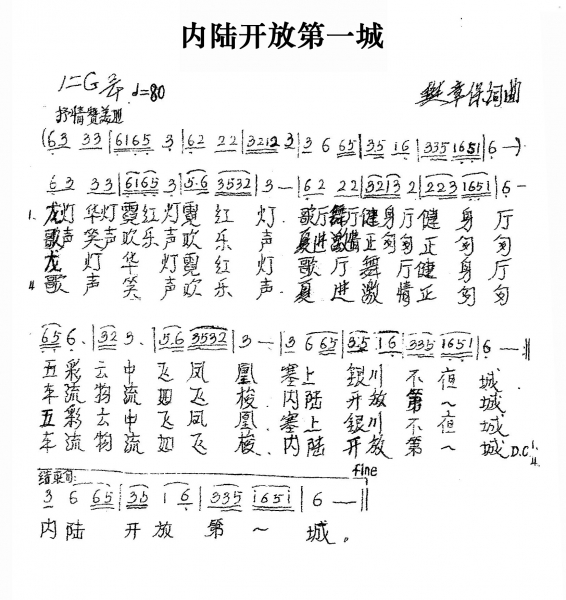 内陆开放第一城
1=G 2/4 ♩=80
抒情赞美地
樊章保词曲
(63 33 | 6165 3 | 62 22 | 3212 3 | 3 6 65 | 35 16 | 335 1651 | 6 - )
63 33 | 6165 3 | 5·6 3532 | 3 - | 62 22 | 3213 2 | 223 1651 | 6 -
1. 龙灯 华灯霓虹灯霓 红 灯. 歌厅舞厅健身厅健 身 厅
歌声 笑声欢乐声欢 乐 声 夏进激情正匆匆正 匆 匆
龙 灯 华 灯霓 红 灯 歌 厅 舞 厅健 身 厅
4 歌 声 笑 声欢 乐 声. 夏 进 激 情正 匆 匆
65 6. | 32 3. | 5·6 3532 | 3 - | 3 6 65 | 3·5 16 | 335 1651 | 6 - :||
五彩 云中 飞 凤 凰 塞上 银川 不 夜 城.
车流 物流 如 飞 梭. 内陆 开放 第 ~ 城.
五彩 云中 飞 凤 凰. 塞上 银川 不 夜 城.
车流 物流 如 飞 梭. 内陆 开放 第 ~ 城 D.C 1. 4.
结束句: fine
3 6 65 | 35 1 6 | 335 1651 | 6 - ||
内陆 开放 第 ~ 城。